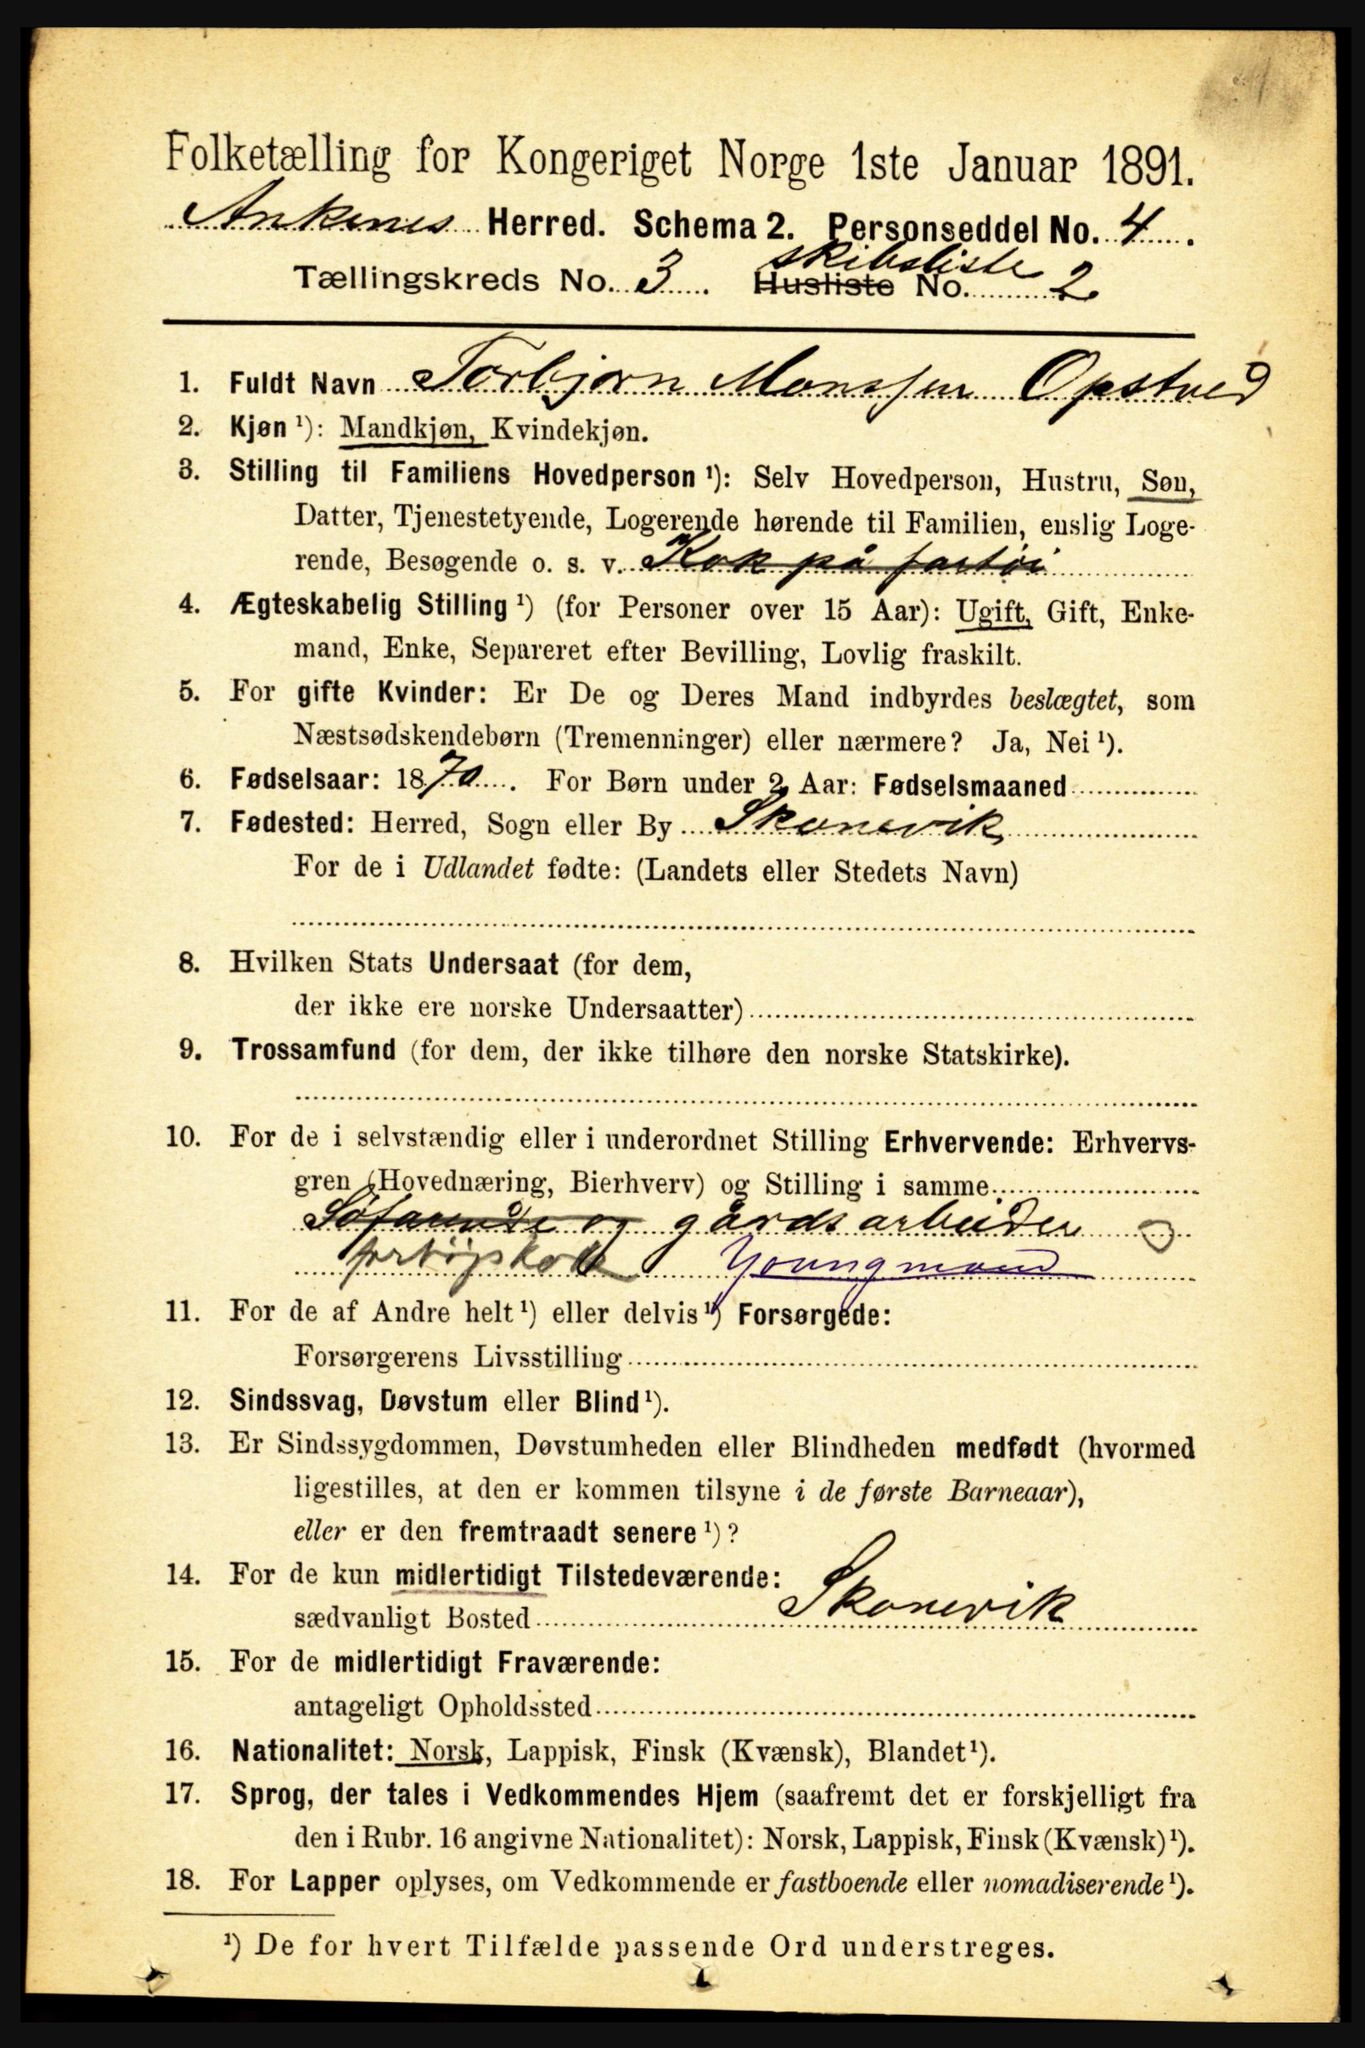 Folketælling for Kongeriget Norge 1ste Januar 1891.
Ankenes Herred. Schema 2. Personseddel No. 4.
skibsliste
Tællingskreds No. 3. Husliste No. 2
1. Fuldt Navn Torbjørn Monssen Opstved
2. Kjøn ¹): Mandkjøn, Kvindekjøn.
3. Stilling til Familiens Hovedperson ¹): Selv Hovedperson, Hustru, Søn,
Datter, Tjenestetyende, Logerende hørende til Familien, enslig Loge-
rende, Besøgende o. s. v. Kok på fartøi
4. Ægteskabelig Stilling ¹) (for Personer over 15 Aar): Ugift, Gift, Enke-
mand, Enke, Separeret efter Bevilling, Lovlig fraskilt.
5. For gifte Kvinder: Er De og Deres Mand indbyrdes beslægtet, som
Næstsødskendebørn (Tremenninger) eller nærmere? Ja, Nei ¹).
6. Fødselsaar: 1870. For Børn under 2 Aar: Fødselsmaaned
7. Fødested: Herred, Sogn eller By Skonevik
For de i Udlandet fødte: (Landets eller Stedets Navn)
8. Hvilken Stats Undersaat (for dem,
der ikke ere norske Undersaatter)
9. Trossamfund (for dem, der ikke tilhøre den norske Statskirke).
10. For de i selvstændig eller i underordnet Stilling Erhvervende: Erhvervs-
gren (Hovednæring, Bierhverv) og Stilling i samme
Søfarende og gårdsarbeider
fartøiskok Youngmand
11. For de af Andre helt ¹) eller delvis ¹) Forsørgede:
Forsørgerens Livsstilling
12. Sindssvag, Døvstum eller Blind ¹).
13. Er Sindssygdommen, Døvstumheden eller Blindheden medfødt (hvormed
ligestilles, at den er kommen tilsyne i de første Barneaar),
eller er den fremtraadt senere ¹)?
14. For de kun midlertidigt Tilstedeværende:
sædvanligt Bosted Skonevik
15. For de midlertidigt Fraværende:
antageligt Opholdssted
16. Nationalitet: Norsk, Lappisk, Finsk (Kvænsk), Blandet ¹).
17. Sprog, der tales i Vedkommendes Hjem (saafremt det er forskjelligt fra
den i Rubr. 16 angivne Nationalitet): Norsk, Lappisk, Finsk (Kvænsk) ¹).
18. For Lapper oplyses, om Vedkommende er fastboende eller nomadiserende ¹).
¹) De for hvert Tilfælde passende Ord understreges.